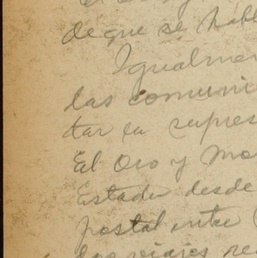 de que se habl
Igualmen
las comuni
tar la supres
El Oro y Mo
Estado desde
postal entre
los viajes re